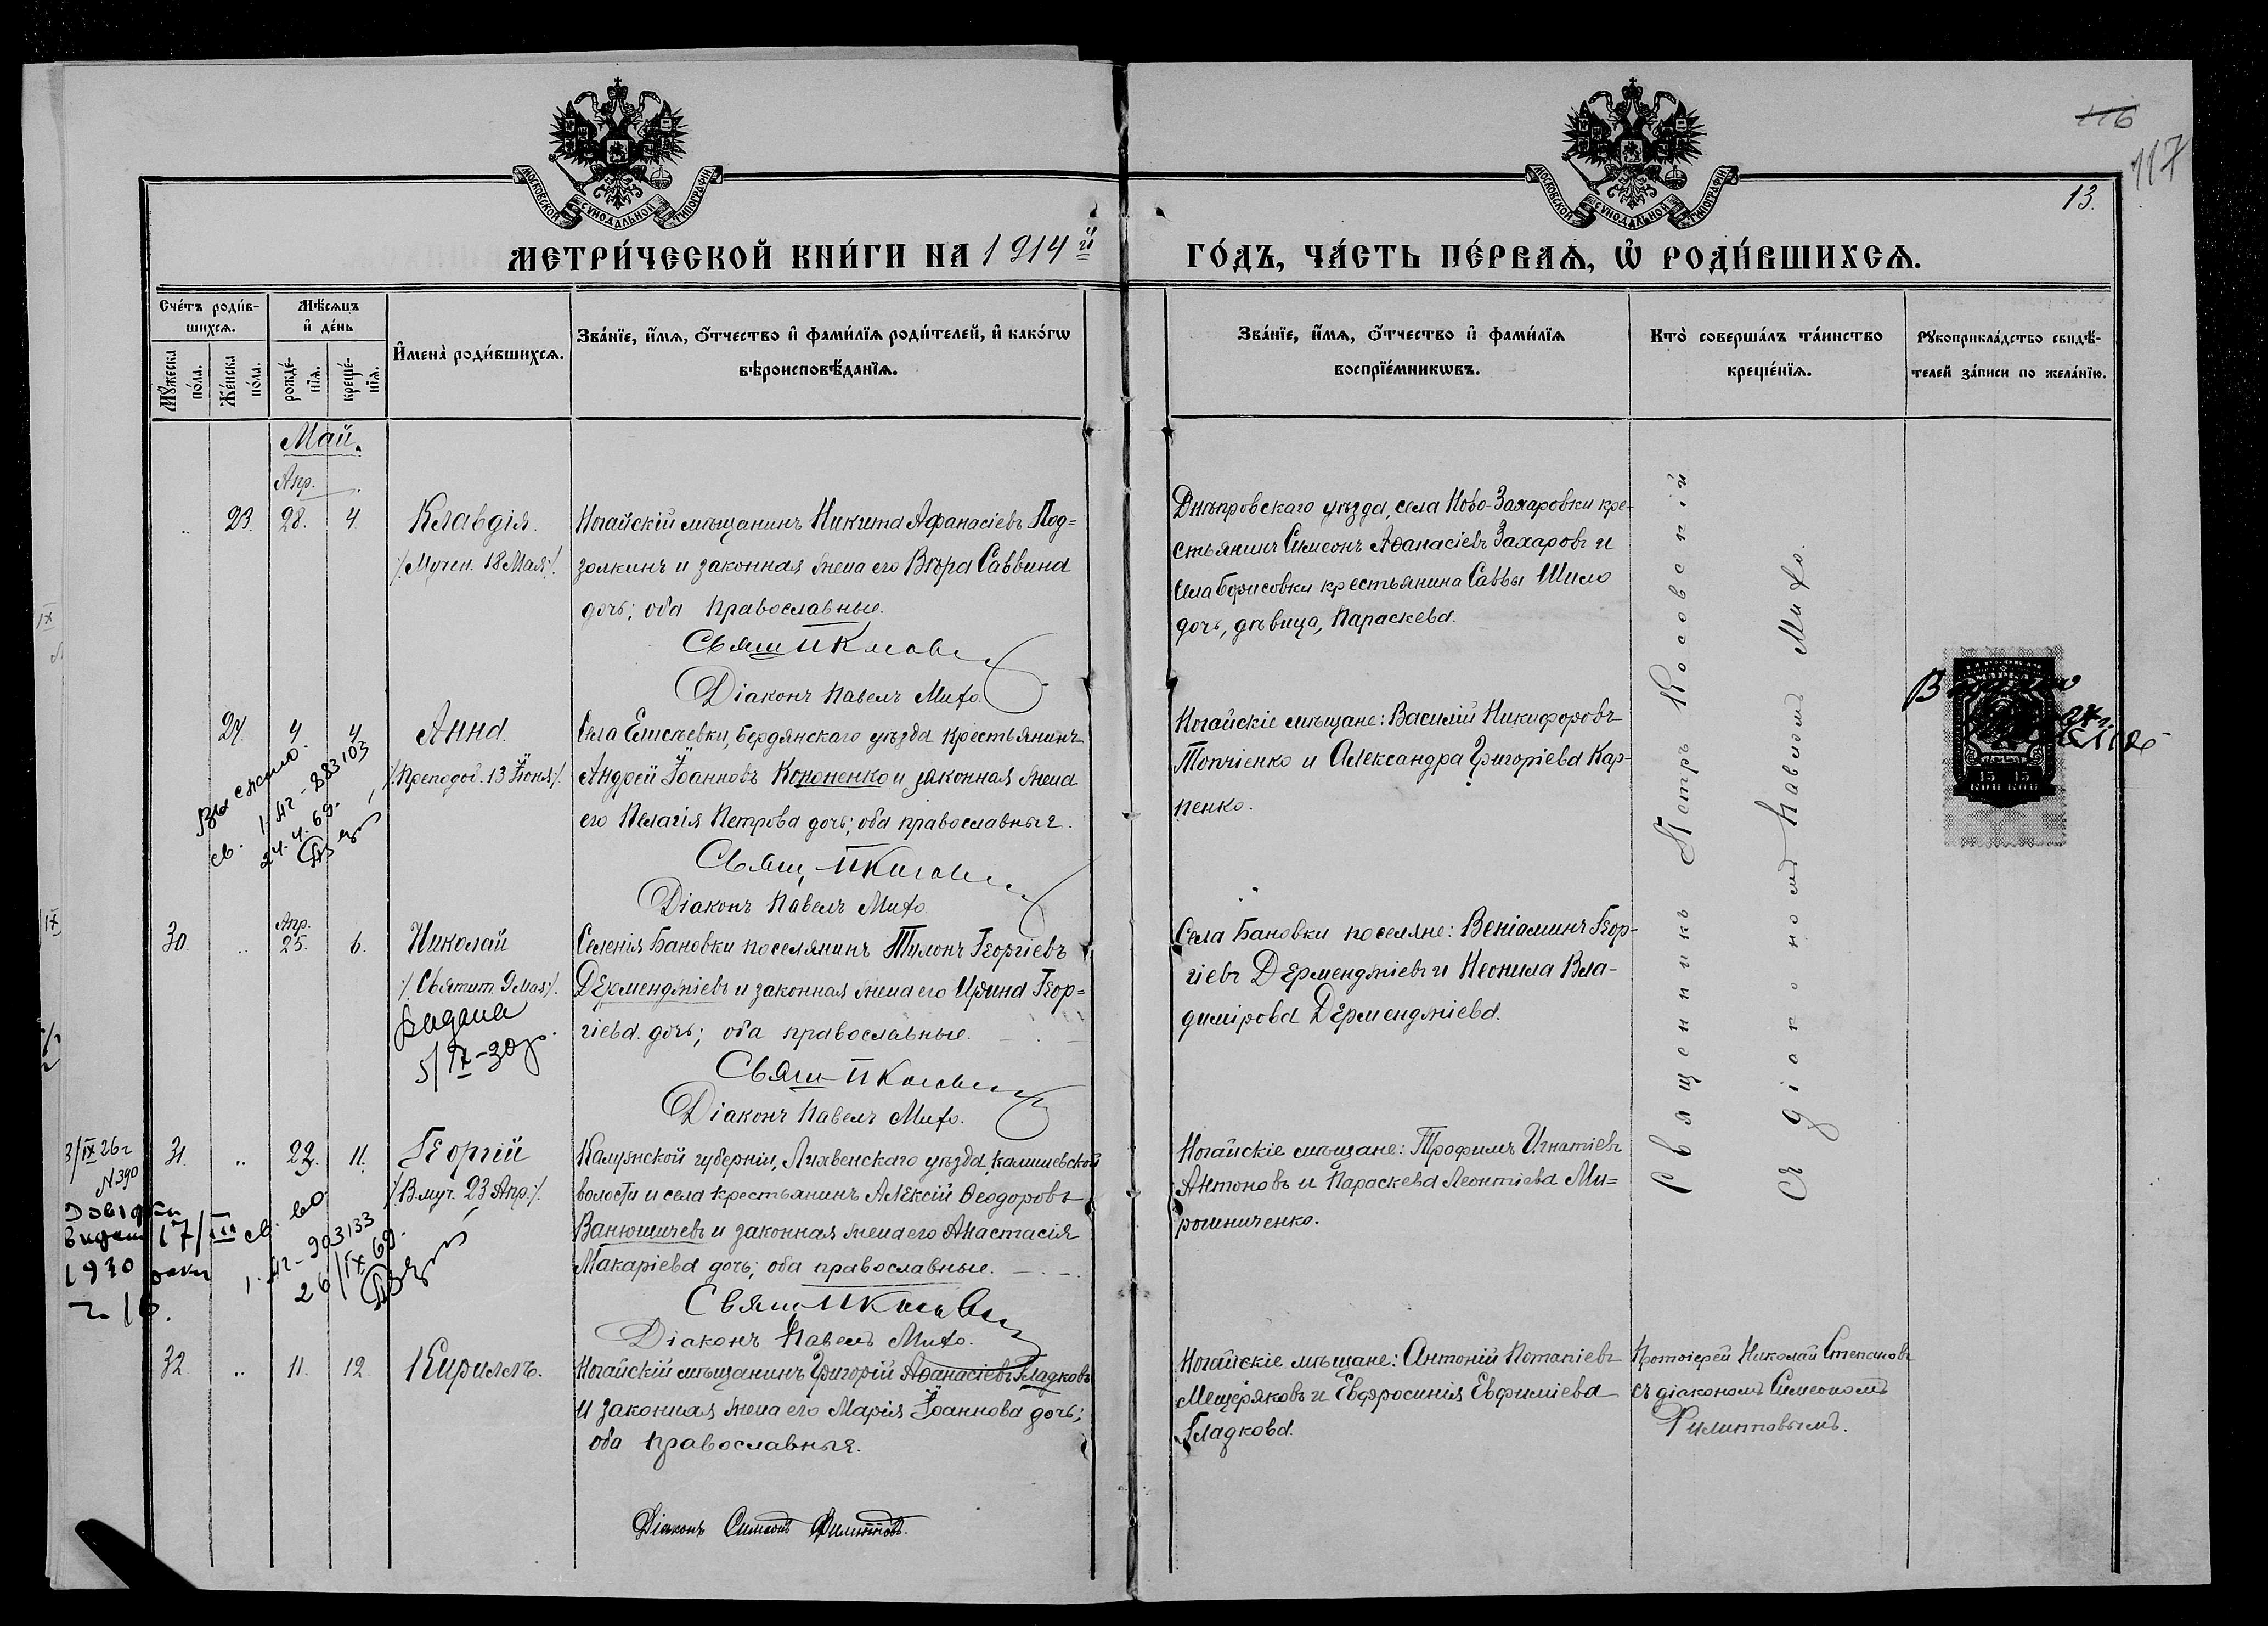 116
117
13.
МОСКОВСКОЙ СУНОДАЛЬНОЙ ТИПОГРАФІИ
МОСКОВСКОЙ СУНОДАЛЬНОЙ ТИПОГРАФІИ
МЕТРИ́ЧЕСКОЙ КНИ́ГИ НА 1914й
ГО́ДЪ, ЧА́СТЬ ПЕ́РВАѦ, Ѡ҆ РОДИ́ВШИХСѦ.
Сче́тъ роди́в-
шихсѧ.
Мꙋ́жеска по́ла.
Же́нска по́ла.
Мѣ́сѧцъ
и҆ де́нь
рожде́-
нїѧ.
креще́-
нїѧ.
И҆мена̀ роди́вшихсѧ.
Зва́нїе, и҆́мѧ, ѻ҆́тчество и҆ фами́лїѧ роди́телей, и҆ како́гѡ
вѣроисповѣ́данїѧ.
Зва́нїе, и҆́мѧ, ѻ҆́тчество и҆ фами́лїѧ
воспрїе́мникѡвъ.
Кто̀ соверша́лъ та́инство
креще́нїѧ.
Рꙋкоприкла́дство свидѣ́-
телей за́писи по жела́нїю.
Май.
Апр.
23. 28. 4. Клавдія.
/Мучен. 18 Мая/.
Ногайскій мѣщанинъ Никита Афанасіевъ Под=
золкинъ и законная жена его Вѣра Саввина
дочь; оба православные.
Свящ
Діаконъ Павелъ Михо.
Днѣпровскаго уѣзда, села Ново-Захаровки кре-
стьянинъ Симеонъ Аѳанасіевъ Захаровъ и
села Борисовки крестьянина Саввы Шило
дочь, дѣвица, Параскева.
24. 4 4 Анна.
/Преподоб. 13 Іюня/.
Села Елисѣевки, Бердянскаго уѣзда крестьянинъ
Андрей Іоанновъ Кононенко и законная жена
его Пелагія Петрова дочь; оба православные.
Свящ
Діаконъ Павелъ Михо.
Ногайскіе мѣщане: Василій Никифоровъ
Топчіенко и Александра Григоріева Кар-
пенко.
Выслано
св. 1-АГ-883103
24.4.69.
30. Апр. 25. 6. Николай
/Святит 9 мая/.
Селенія Бановки поселянинъ Тихонъ Георгіевъ
Дерменджіевъ и законная жена его Ирина Геор=
гіева дочь; оба православные.
Свящ
Діаконъ Павелъ Михо.
Села Бановки поселяне: Веніаминъ Геор-
гіевъ Дерменджіевъ и Неонила Вла-
димірова Дерменджіева.
Видана
5/IX-30р.
31. 22. 11. Георгій
/Вмуч. 23 Апр./.
Калужской губерніи, Лихвенскаго уѣзда, Калишевской
волости и села крестьянинъ Алексій Ѳеодоровъ
Ванюшичевъ и законная жена его Анастасія
Макаріева дочь; оба православные.
Свящ
Діаконъ Павелъ Михо.
Ногайскіе мѣщане: Трофимъ Игнатіевъ
Антоновъ и Параскева Леонтіева Ми=
рошниченко.
3/IX 26г
N 390
Довідки
видана 17/III
1930 року
ч 16.
св. во
1-АГ-903133
26/IX 69.
32. 11. 12. Кириллъ.
Ногайскій мѣщанинъ Григорій Аѳанасіевъ Гладковъ
и законная жена его Марія Іоаннова дочь;
оба православные.
Діаконъ Симеонъ Филипповъ.
Ногайскіе мѣщане: Антоній Потапіевъ
Мещеряковъ и Евфросинія Евфиміева
Гладкова.
Протоіерей Николай Степановъ
съ діакономъ Симеономъ
Филипповымъ.
Священникъ Петръ Косовскій
Съ діакономъ Павломъ Михо.
15 15
КОП КОП